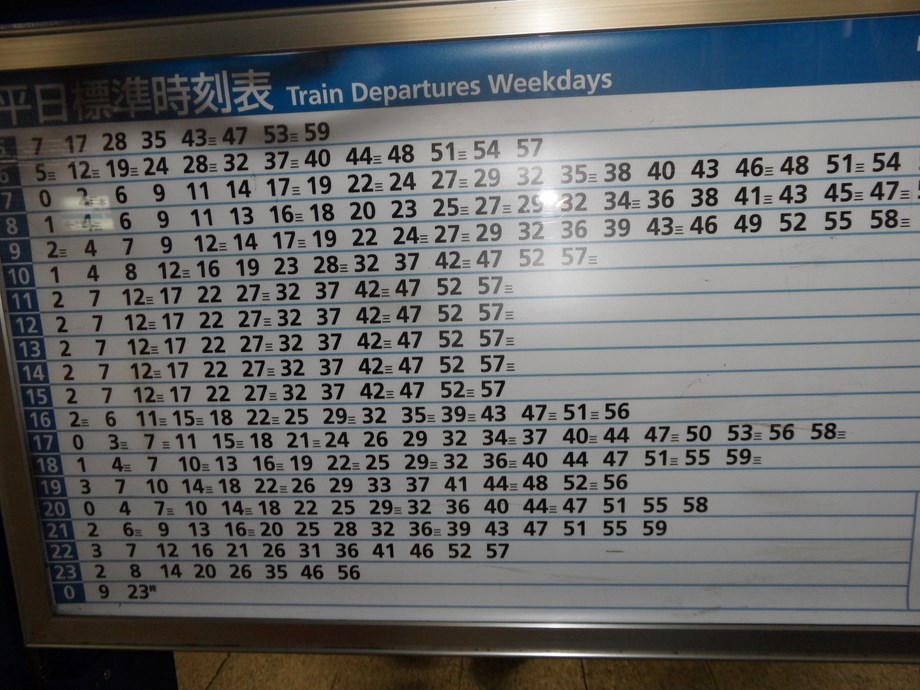 平日標準時刻表 Train Departures Weekdays
5 7 17 28 35 43三 47 53三 59
6 5三 12三 19三 24 28三 32 37三 40 44三 48 51三 54 57
7 0 2三 6 9 11 14 17三 19 22三 24 27三 29 32 35三 38 40 43 46三 48 51三 54
8 1 4三 6 9 11 13 16三 18 20 23 25三 27三 29 32 34三 36 38 41三 43 45三 47三
9 2三 4 7 9 12三 14 17三 19 22 24三 27三 29 32 36 39 43三 46 49 52 55 58三
10 1 4 8 12三 16 19 23 28三 32 37 42三 47 52 57三
11 2 7 12三 17 22 27三 32 37 42三 47 52 57三
12 2 7 12三 17 22 27三 32 37 42三 47 52 57三
13 2 7 12三 17 22 27三 32 37 42三 47 52 57三
14 2 7 12三 17 22 27三 32 37 42三 47 52 57三
15 2 7 12三 17 22 27三 32 37 42三 47 52三 57
16 2三 6 11三 15三 18 22三 25 29三 32 35三 39三 43 47三 51三 56
17 0 3三 7三 11 15三 18 21三 24 26 29 32 34三 37 40三 44 47三 50 53三 56 58三
18 1 4三 7 10三 13 16三 19 22三 25 29三 32 36三 40 44 47 51三 55 59三
19 3 7 10 14三 18 22三 26 29 33 37 41 44三 48 52三 56
20 0 4 7三 10 14三 18 22 25 29三 32 36 40 44三 47 51 55 58
21 2 6三 9 13 16三 20 25 28 32 36三 39 43 47 51 55 59
22 3 7 12 16 21 26 31 36 41 46 52 57
23 2 8 14 20 26 35 46 56
0 9 23